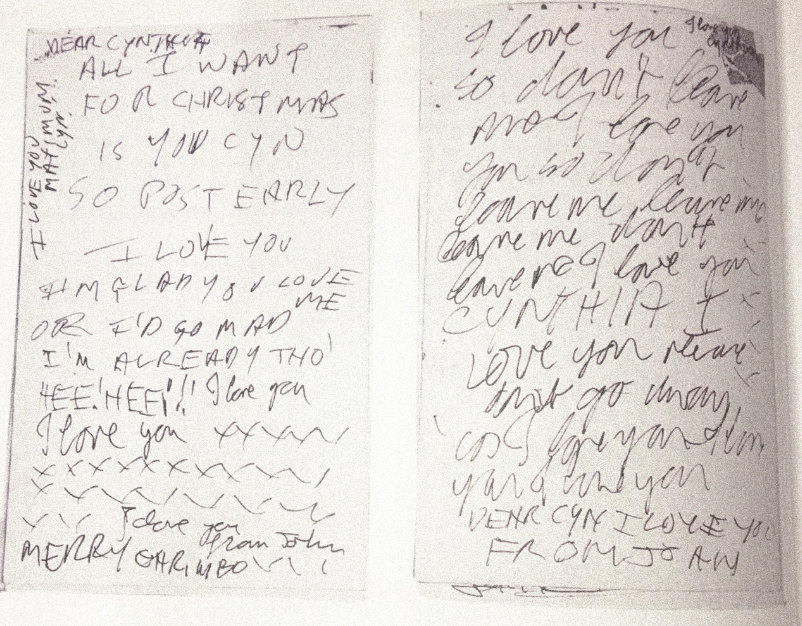 DEAR CYNTHIA
ALL I WANT
FOR CHRISTMAS
IS YOU CYN
SO POST EARLY
I LOVE YOU
I'M GLAD YOU LOVE
ME
OR I'D GO MAD
I'M ALREADY THO'
HEE! HEE!! I love you
I love you xxxxx
xxxxxxxxx
xxxxxxxx
xxx I love you
from John
MERRY CHRIMBO
I LOVE YOU
I love you
I love you
so don't leave
me I love you
you so don't
leave me leave me
leave me don't
leave me I love you
CYNTHIA I
LOVE you please
don't go away
cos I love you I love
you I love you
DEAR CYN I LOVE YOU
FROM JOHN